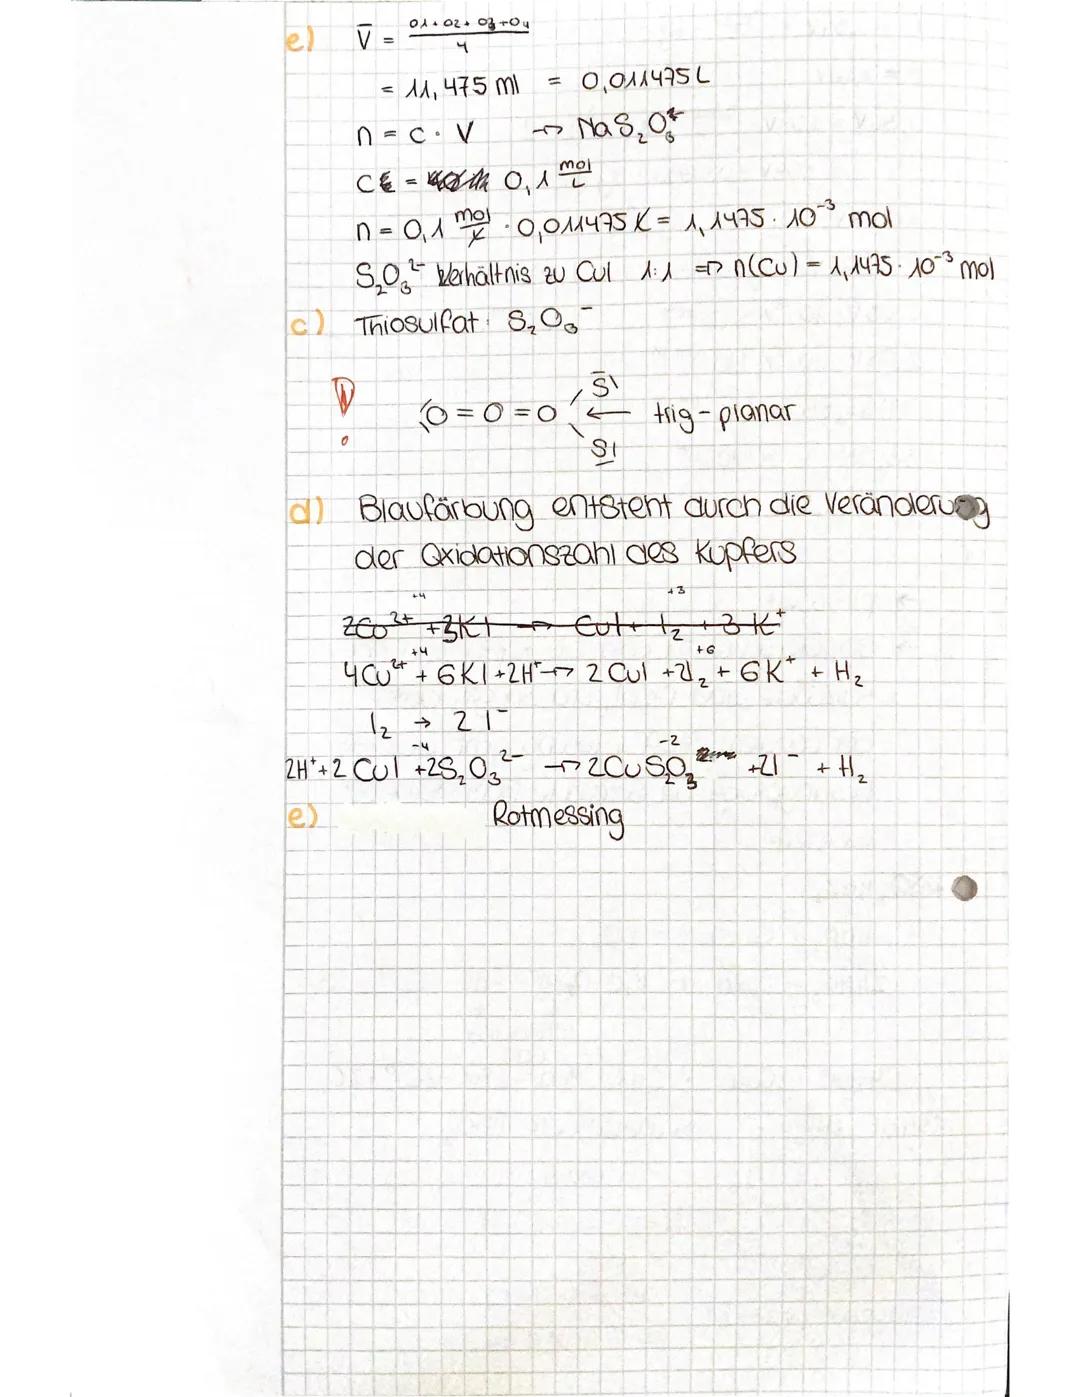 e) V̄ = (01+02+03+04)/4
= 11,475 ml = 0,011475 L
n = c · V → NaS₂O₃
c = 0,1 mol/L
n = 0,1 mol/L · 0,011475 L = 1,1475 · 10⁻³ mol
S₂O₃²⁻ Verhältnis zu CuI 1:1 => n(Cu) = 1,1475 · 10⁻³ mol
c) Thiosulfat: S₂O₃⁻
S
O = O = O ← trig-planar
S
d) Blaufärbung entsteht durch die Veränderung
der Oxidationszahl des Kupfers
+4 +3
2Cu²⁺ + 3KI → CuI + I₂ + 3K⁺
+4 +6
4Cu²⁺ + 6KI + 2H⁺ → 2CuI + 2I₂ + 6K⁺ + H₂
I₂ → 2I⁻
-4 -2
2H⁺ + 2CuI + 2S₂O₃²⁻ → 2CuS₂O₃ + 2I⁻ + H₂
e) Rotmessing